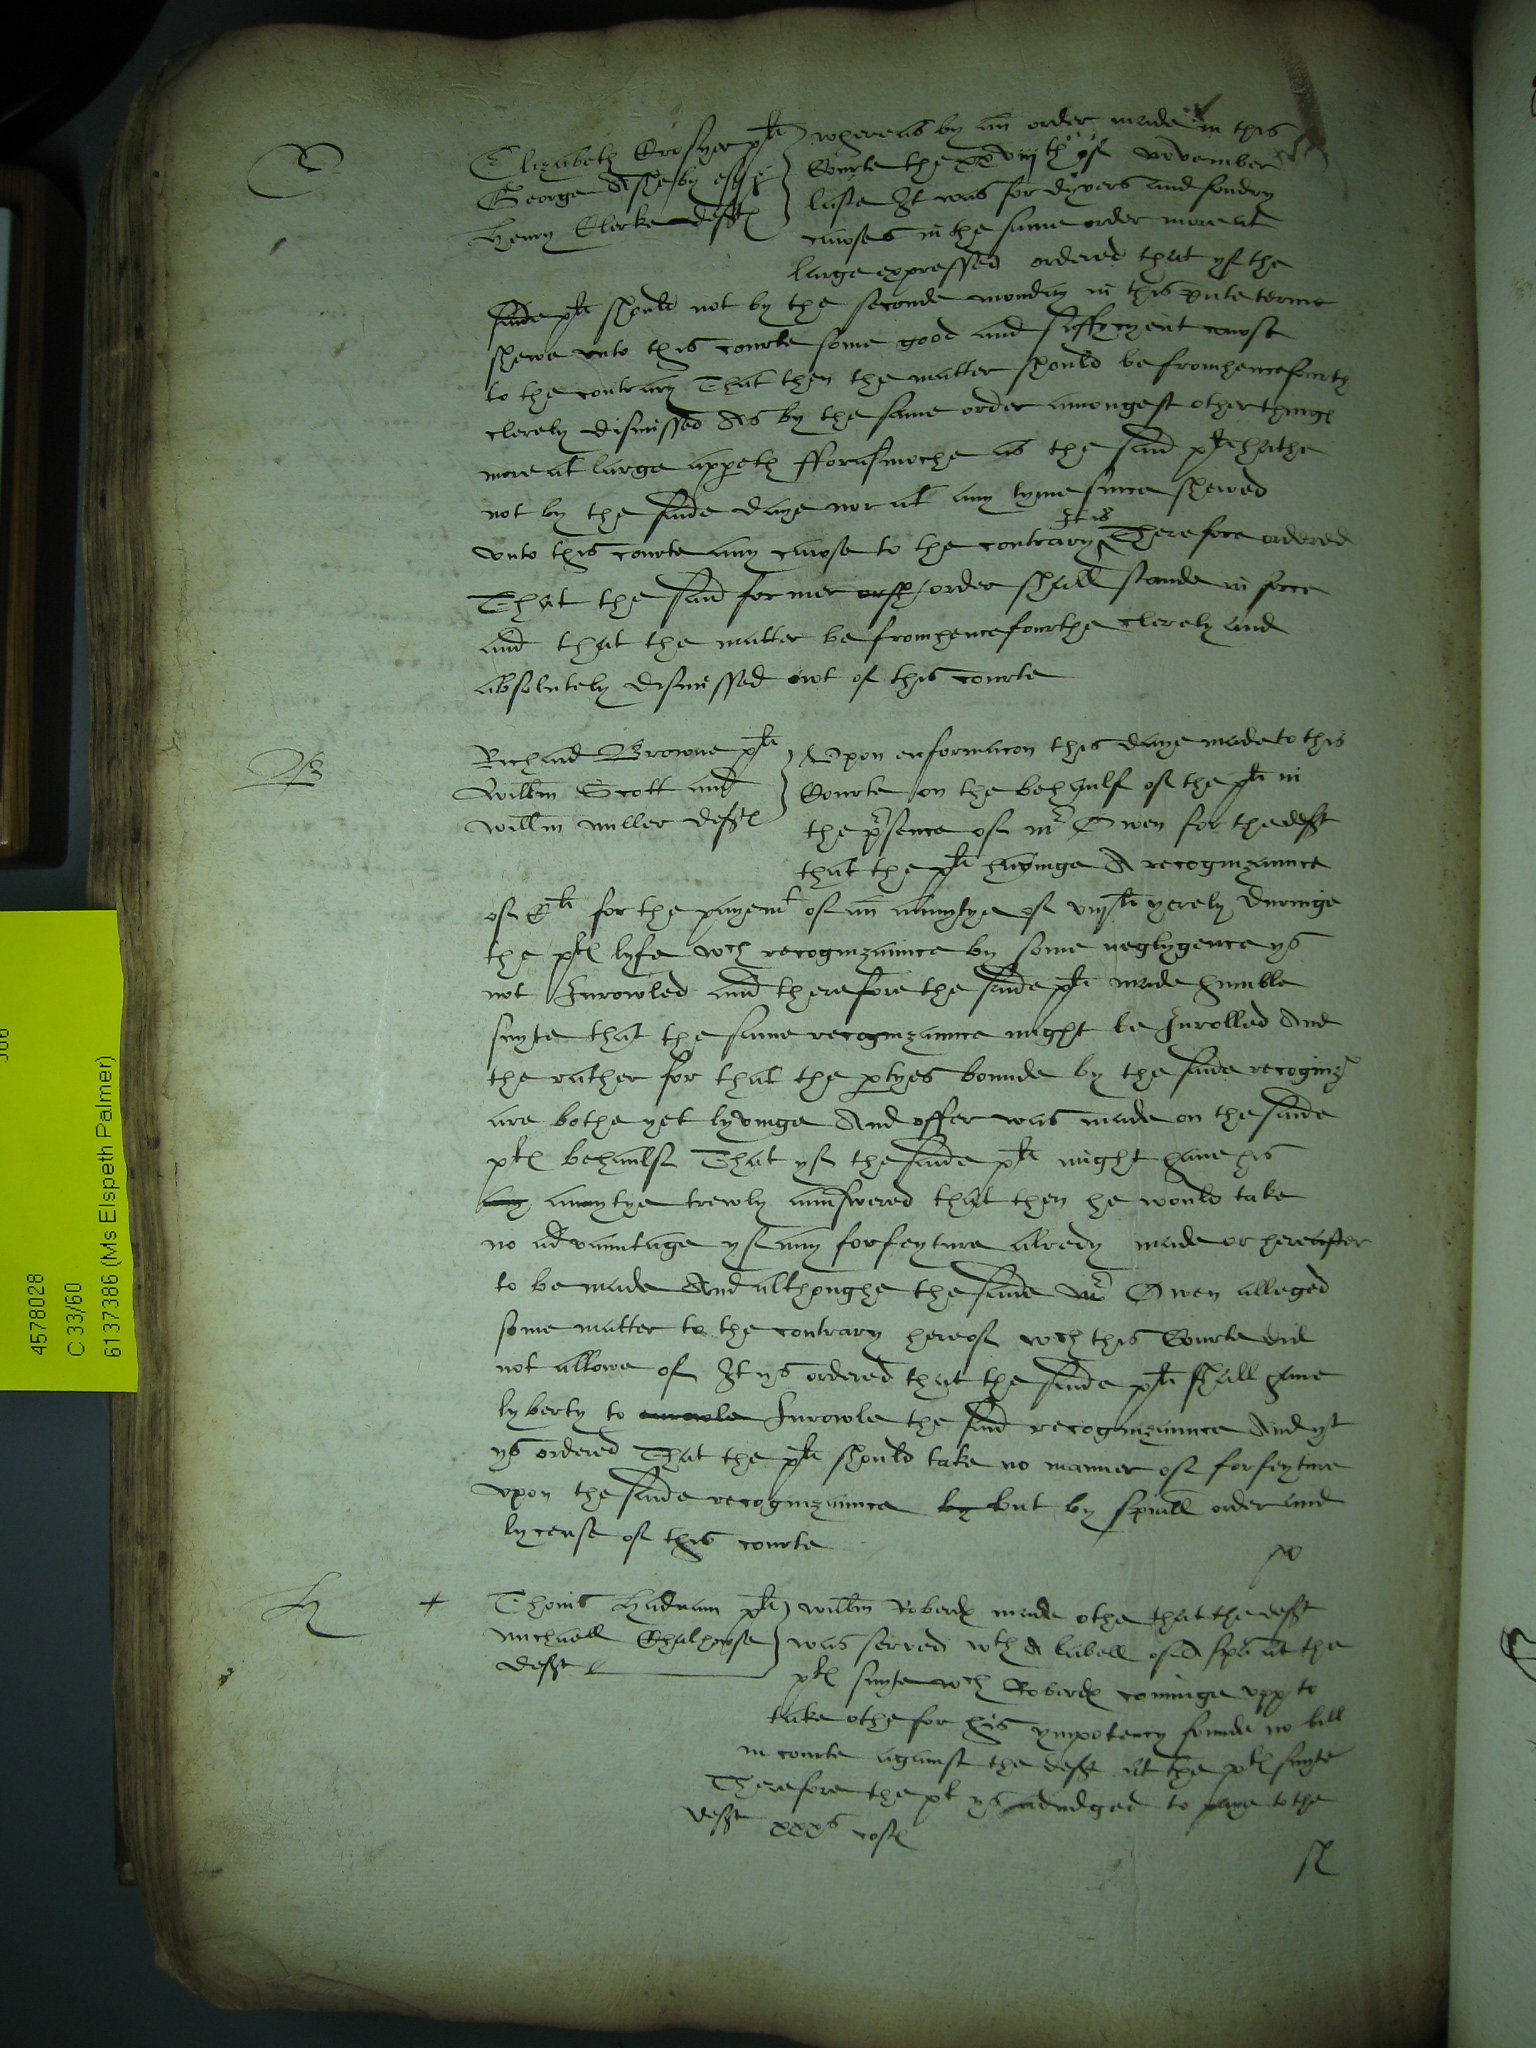 C
Elizabeth Crosyer plt
George Assheby esq &
Henry Clerke defftes
whereas by an order made in this
Courte the xxviijth of November
laste It was for dyvers and sondry
causes in the same order more at
large expressed ordered that yf the
saide plt should not by the seconde monday in this pnte terme
shewe unto this courte some good and suffycyent cause
to the contrary That then the matter should be fromhencefourth
clerely dismissed As by the same order amongest other things
more at large appeth fforasmoche as the said plt hathe
not by the saide daye nor at any tyme since shewed
unto this courte any cause to the contrary It is Therefore ordered
That the said former order shall stande in force
and that the matter be fromhencefourthe clerely and
absolutely dismissed owt of this courte
B
Richard Browne plt
Willm Scott and
Willm Miller defftes
Upon enformacon this daye made to this
Courte on the behaulf of the plt in
the psence of Mr Owen for the defft
that the plt havinge A recognizaunce
of Cli for the payemt of an annytye of viijli yerely duringe
the pltes lyfe wch recognizaunce by some neglygence ys
not Inrowled and therefore the saide plt made humble
suyte that the same recognizaunce might be Inrolled And
the rather for that the ptyes bounde by the saide recogniz
are bothe yet lyvinge And offer was made on the saide
pltes behaulf That yf the saide plt might have his
any anuytye trewly aunswered that then he would take
no advauntage of any forfeyture alredy made or hereafter
to be made And althoughe the saide Mr Owen alleged
some matter to the contrary hereof wch this Courte did
not allowe of It ys ordered that the saide plt shall have
lyberty to enrowle Inrowle the said recognizaunce And yt
ys ordered That the plt should take no manner of forfeyture
upon the saide recognizaunce by but by spiall order and
lycense of this courte
H
+
Thoms Hadnam plt
Michaell Chalhouse
defft
Willm Robertes made othe that the defft
was served wth A labell of A spa at the
pltes suyte wch Robertes cominge upp to
take othe for his ympotency founde no bill
in courte against the defft at the pltes suyte
Therefore the plt ys adiudged to paye to the
defft xxxs costes
4578028
C 33/60
6137386 (Ms Elspeth Palmer)